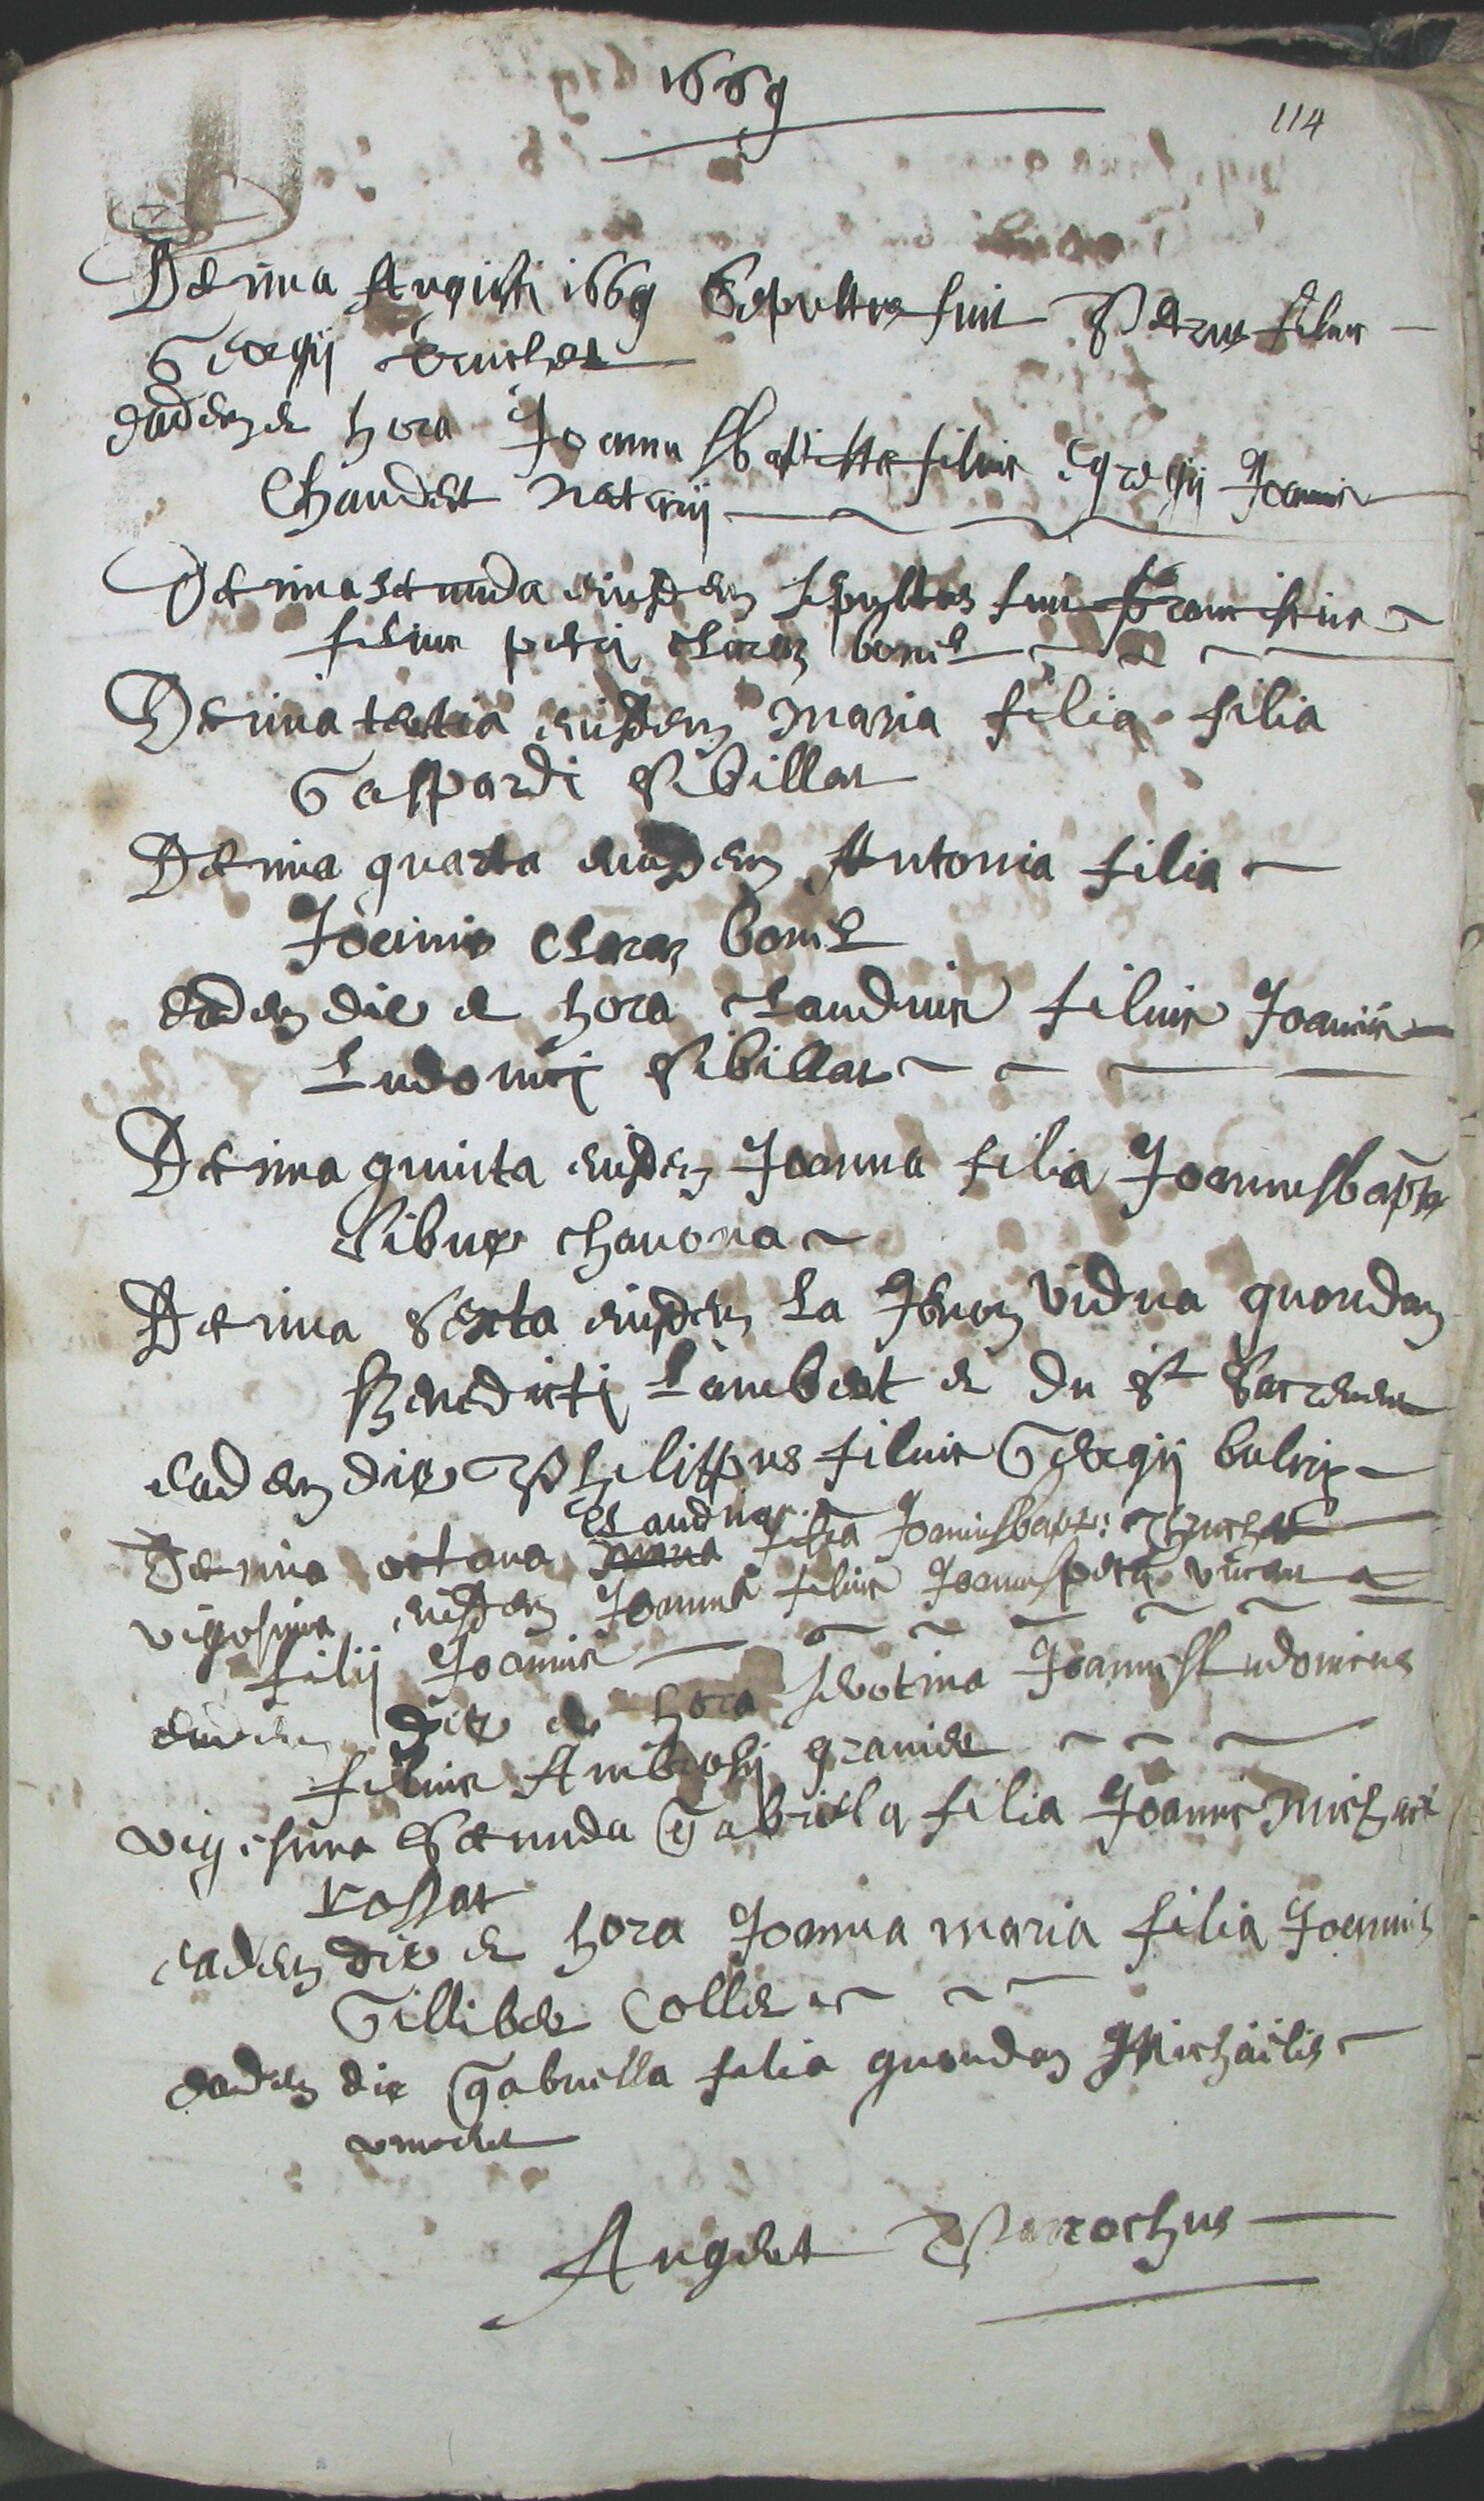 1669
114
Decima Augusti 1669 sepultus fuit Petrus filius
Georgij truchet
eadem et hora Joannes baptista filius egregij Joannis
Chaudet notarij
Decima secunda eiusdem sepultus fuit franciscus
filius petri claraz bonil
Decima tertia eiusdem maria filia filia
Gaspardi Sibillat
Decima quarta eiusdem Antonia filia
Joannis Claraz bonil
eadem die et hora claudius filius Joannis
Ludovici Sibillat
Decima quinta eiusdem Joanna filia Joannesbapta
Sibue chavona
Decima sexta eiusdem La vidua quondam
Benedicti Lambert et du St
eadem die Philippus filius Georgij
Claudius
Decima octava maria filia Joannisbapt: Truchet
vigesima eiusdem Joannes filius Joannispetri
filij Joannis
eadem die et hora serotina Joannes Ludovicus
filius Ambrosij grand
vigesima secunda Gabriela filia Joannis michael
rossat
eadem die et hora Joanna maria filia Joannis
Gilliber Collet
eadem die Gabriella filia quondam Michaëlis
Augert Parrochus